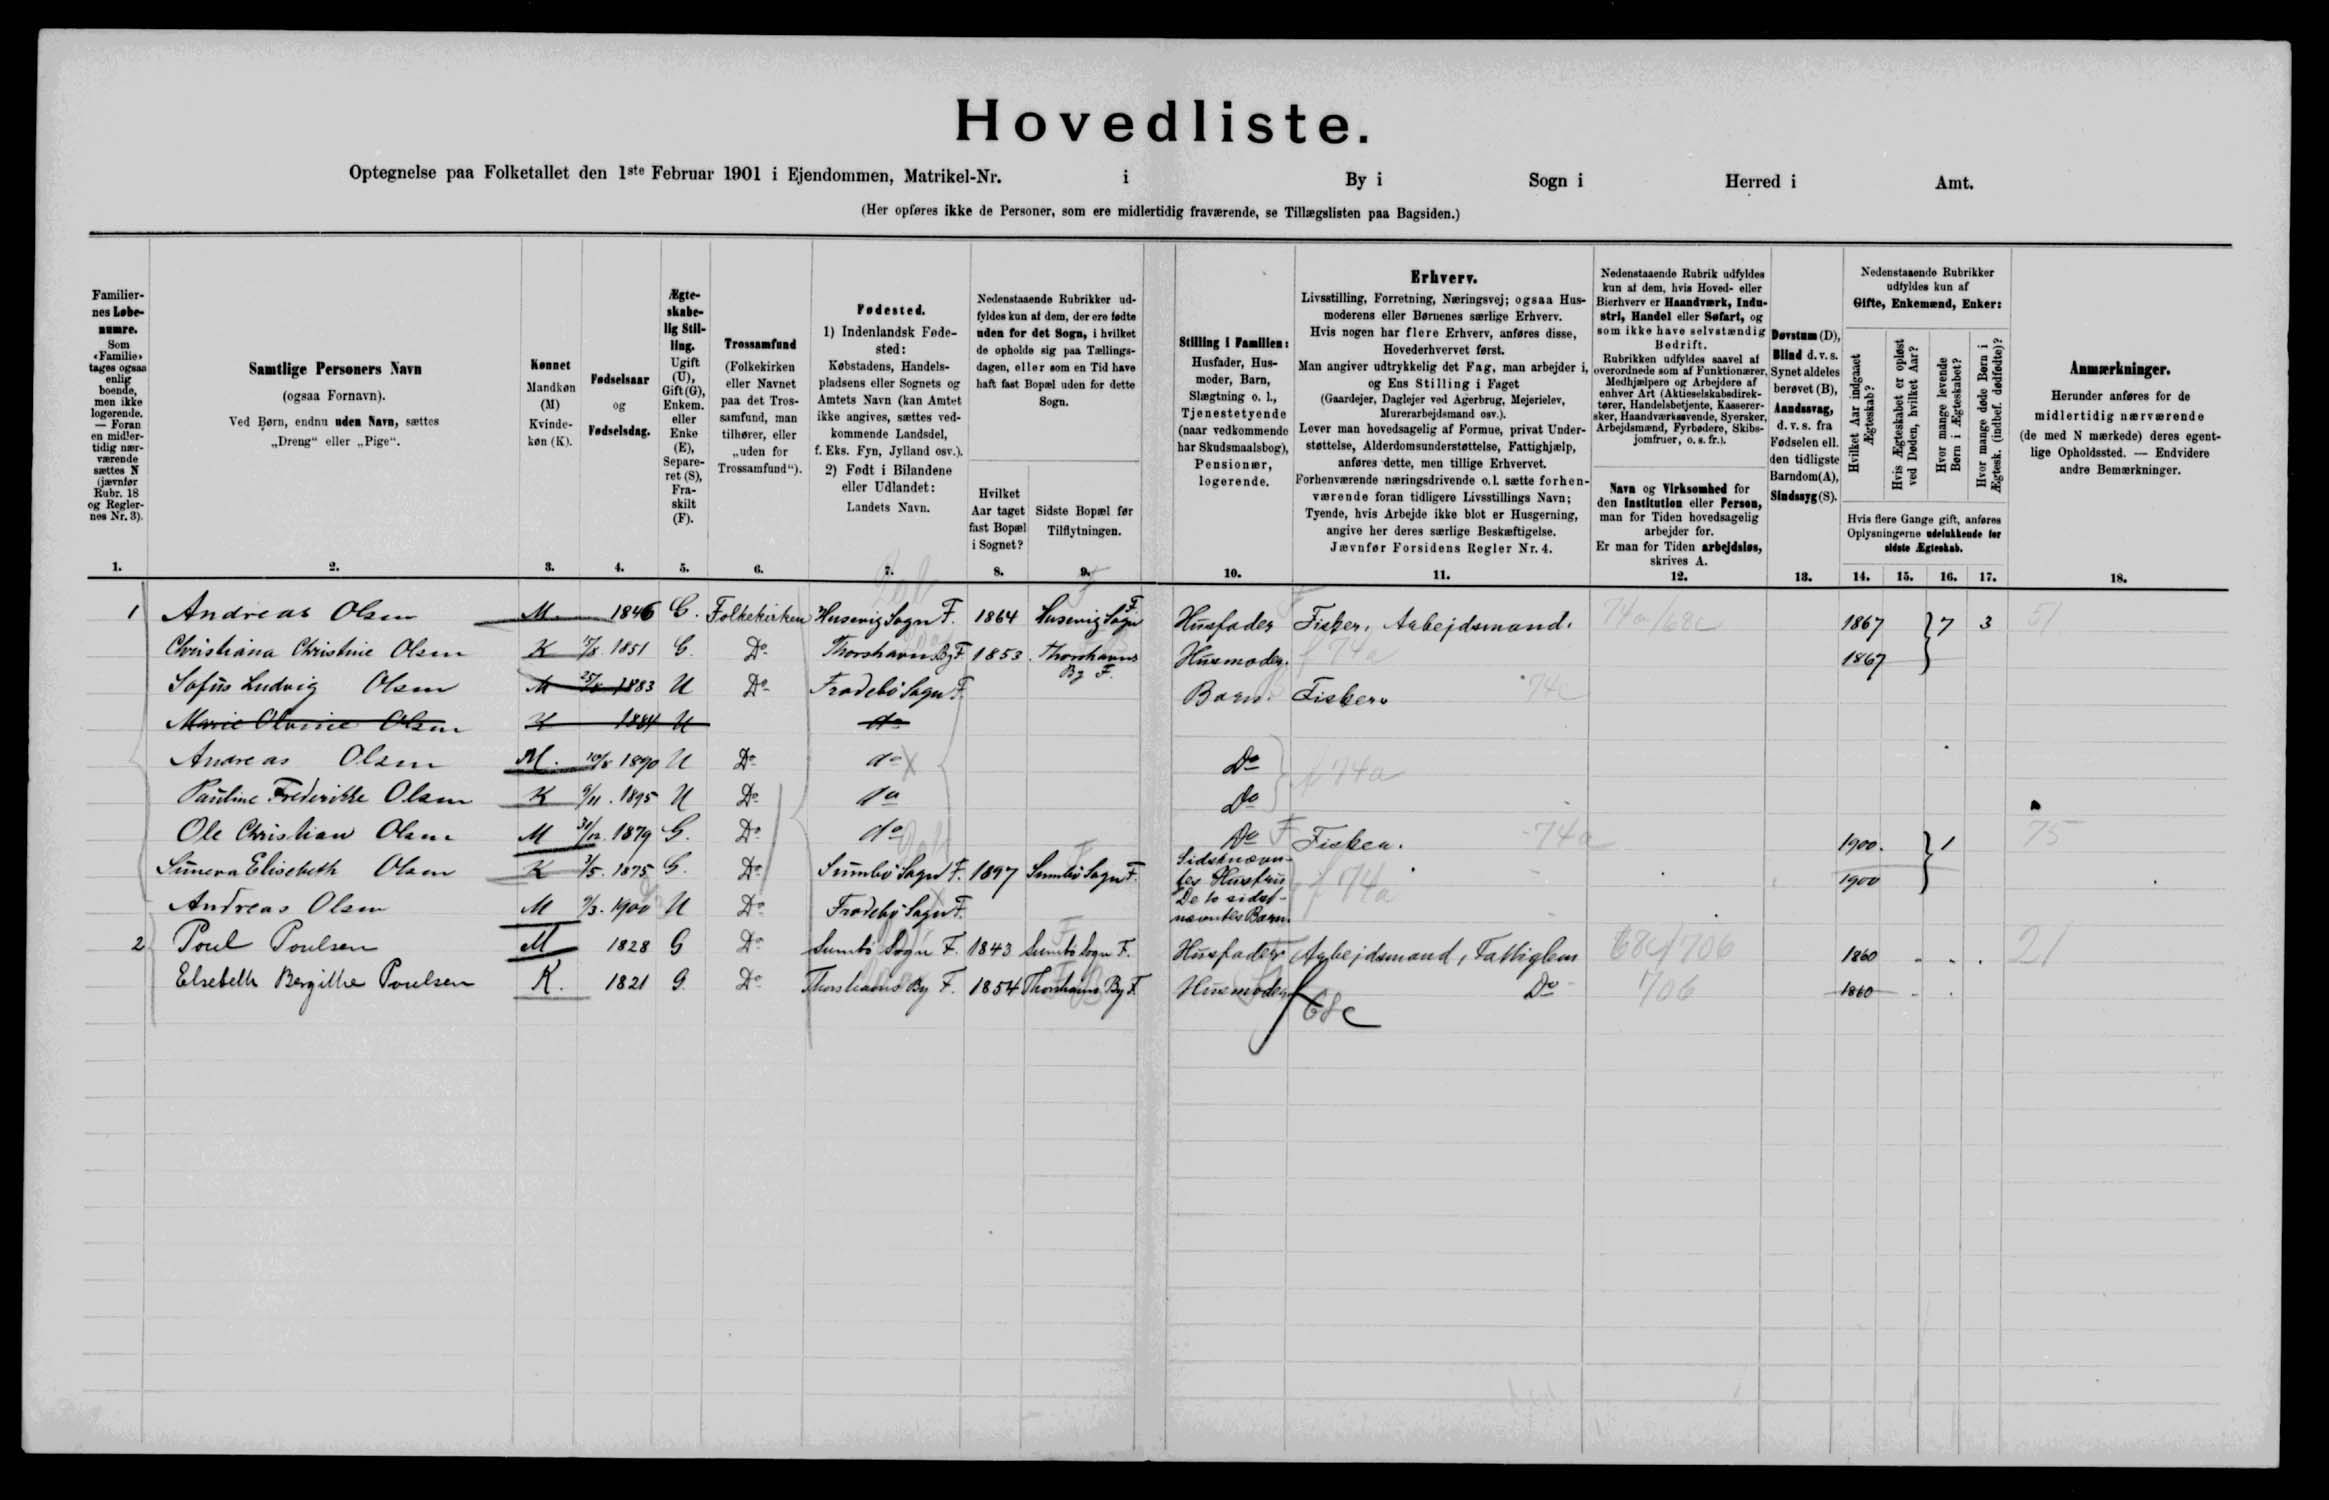 Hovedliste.
Optegnelse paa Folketallet den 1ste Februar 1901 i Ejendommen, Matrikel-Nr. i By i Sogn i Herred i Amt.
(Her opføres ikke de Personer, som ere midlertidig fraværende, se Tillægslisten paa Bagsiden.)
Familiernes Løbenumre. Som «Familie» tages ogsaa enlig boende, men ikke logerende. — Foran en midlertidig nærværende sættes N (jævnfør Rubr. 18 og Reglernes Nr. 3).
Samtlige Personers Navn
(ogsaa Fornavn).
Ved Børn, endnu uden Navn, sættes
„Dreng“ eller „Pige“.
Kønnet
Mandkøn (M)
Kvindekøn (K).
Fødselsaar
og
Fødselsdag.
Ægteskabelig Stilling.
Ugift (U), Gift (G), Enkem. eller Enke (E), Separeret (S), Fraskilt (F).
Trossamfund
(Folkekirken eller Navnet paa det Trossamfund, man tilhører, eller „uden for Trossamfund“).
Fødested.
1) Indenlandsk Fødested:
Købstadens, Handelspladsens eller Sognets og Amtets Navn (kan Amtet ikke angives, sættes vedkommende Landsdel, f. Eks. Fyn, Jylland osv.).
2) Født i Bilandene eller Udlandet:
Landets Navn.
Nedenstaaende Rubrikker udfyldes kun af dem, der ere fødte uden for det Sogn, i hvilket de opholde sig paa Tællingsdagen, eller som en Tid have haft fast Bopæl uden for dette Sogn.
Hvilket Aar taget fast Bopæl i Sognet?
Sidste Bopæl før Tilflytningen.
Stilling i Familien:
Husfader, Husmoder, Barn, Slægtning o. l., Tjenestetyende (naar vedkommende har Skudsmaalsbog), Pensionær, logerende.
Erhverv.
Livsstilling, Forretning, Næringsvej; ogsaa Husmoderens eller Børnenes særlige Erhverv.
Hvis nogen har flere Erhverv, anføres disse, Hovederhvervet først.
Man angiver udtrykkelig det Fag, man arbejder i, og Ens Stilling i Faget
(Gaardejer, Daglejer ved Agerbrug, Mejerielev, Murerarbejdsmand osv.).
Lever man hovedsagelig af Formue, privat Understøttelse, Alderdomsunderstøttelse, Fattighjælp, anføres dette, men tillige Erhvervet.
Forhenværende næringsdrivende o. l. sætte forhenværende foran tidligere Livsstillings Navn;
Tyende, hvis Arbejde ikke blot er Husgerning, angive her deres særlige Beskæftigelse.
Jævnfør Forsidens Regler Nr. 4.
Nedenstaaende Rubrik udfyldes kun af dem, hvis Hoved- eller Bierhverv er Haandværk, Industri, Handel eller Søfart, og som ikke have selvstændig Bedrift.
Rubrikken udfyldes saavel af overordnede som af Funktionærer, Medhjælpere og Arbejdere af enhver Art (Aktieselskabsdirektører, Handelsbetjente, Kasserersker, Haandværkssvende, Syersker, Arbejdsmænd, Fyrbødere, Skibsjomfruer, o. s. fr.).
Navn og Virksomhed for den Institution eller Person, man for Tiden hovedsagelig arbejder for.
Er man for Tiden arbejdsløs, skrives A.
Døvstum (D), Blind d. v. s. Synet aldeles berøvet (B), Aandssvag, d. v. s. fra Fødselen ell. den tidligste Barndom (A), Sindssyg (S).
Nedenstaaende Rubrikker udfyldes kun af
Gifte, Enkemænd, Enker:
Hvilket Aar indgaaet Ægteskab?
Hvis Ægteskabet er opløst ved Døden, hvilket Aar?
Hvor mange levende Børn i Ægteskabet?
Hvor mange døde Børn i Ægtesk. (indbef. dødfødte)?
Hvis flere Gange gift, anføres Oplysningerne udelukkende for sidste Ægteskab.
Anmærkninger.
Herunder anføres for de midlertidig nærværende (de med N mærkede) deres egentlige Opholdssted. — Endvidere andre Bemærkninger.
1. 2. 3. 4. 5. 6. 7. 8. 9. 10. 11. 12. 13. 14. 15. 16. 17. 18.
1 Andreas Olsen M. 1846 G. Folkekirken Husevig Sogn F. 1864 Husevig Sogn F. Husfader Fisker, Arbejdsmand. 74a/68c 1867 7 3 51
Christiana Christine Olsen K 15/8. 1851 G. Do Thorshavn By F. 1853. Thorshavns By F. Husmoder. f 74a 1867
Sofus Ludvig Olsen M 25/8 1883 U Do Frodebö Sogn F. Barn. Fisker. 74c
Marie Olsen K 1884 U do
Andreas Olsen M. 10/8 1890 U Do do Do f 74a
Pauline Frederikke Olsen K 9/11. 1895 U Do do Do
Ole Christian Olsen M 31/12. 1879 G. Do do Do Fisker. 74a 1900. 1 75
Sunneva Elisebeth Olsen K 1/5. 1875 G. Do Sumbö Sogn F. 1897 Sumbö Sogn F. Sidstnævntes Hustru f 74a 1900
Andreas Olsen M 9/3. 1900 U Do Frodebö Sogn F. De to sidstnævntes Barn.
2 Poul Poulsen M 1828 G Do Sumbö Sogn F. 1843 Sumbö Sogn F. Husfader Arbejdsmand, Fattiglem 68c/706 1860 21
Elsebeth Bergithe Poulsen K. 1821 G. Do Thorshavns By F. 1854 Thorshavns By F. Husmoder f 68c Do 706 1860